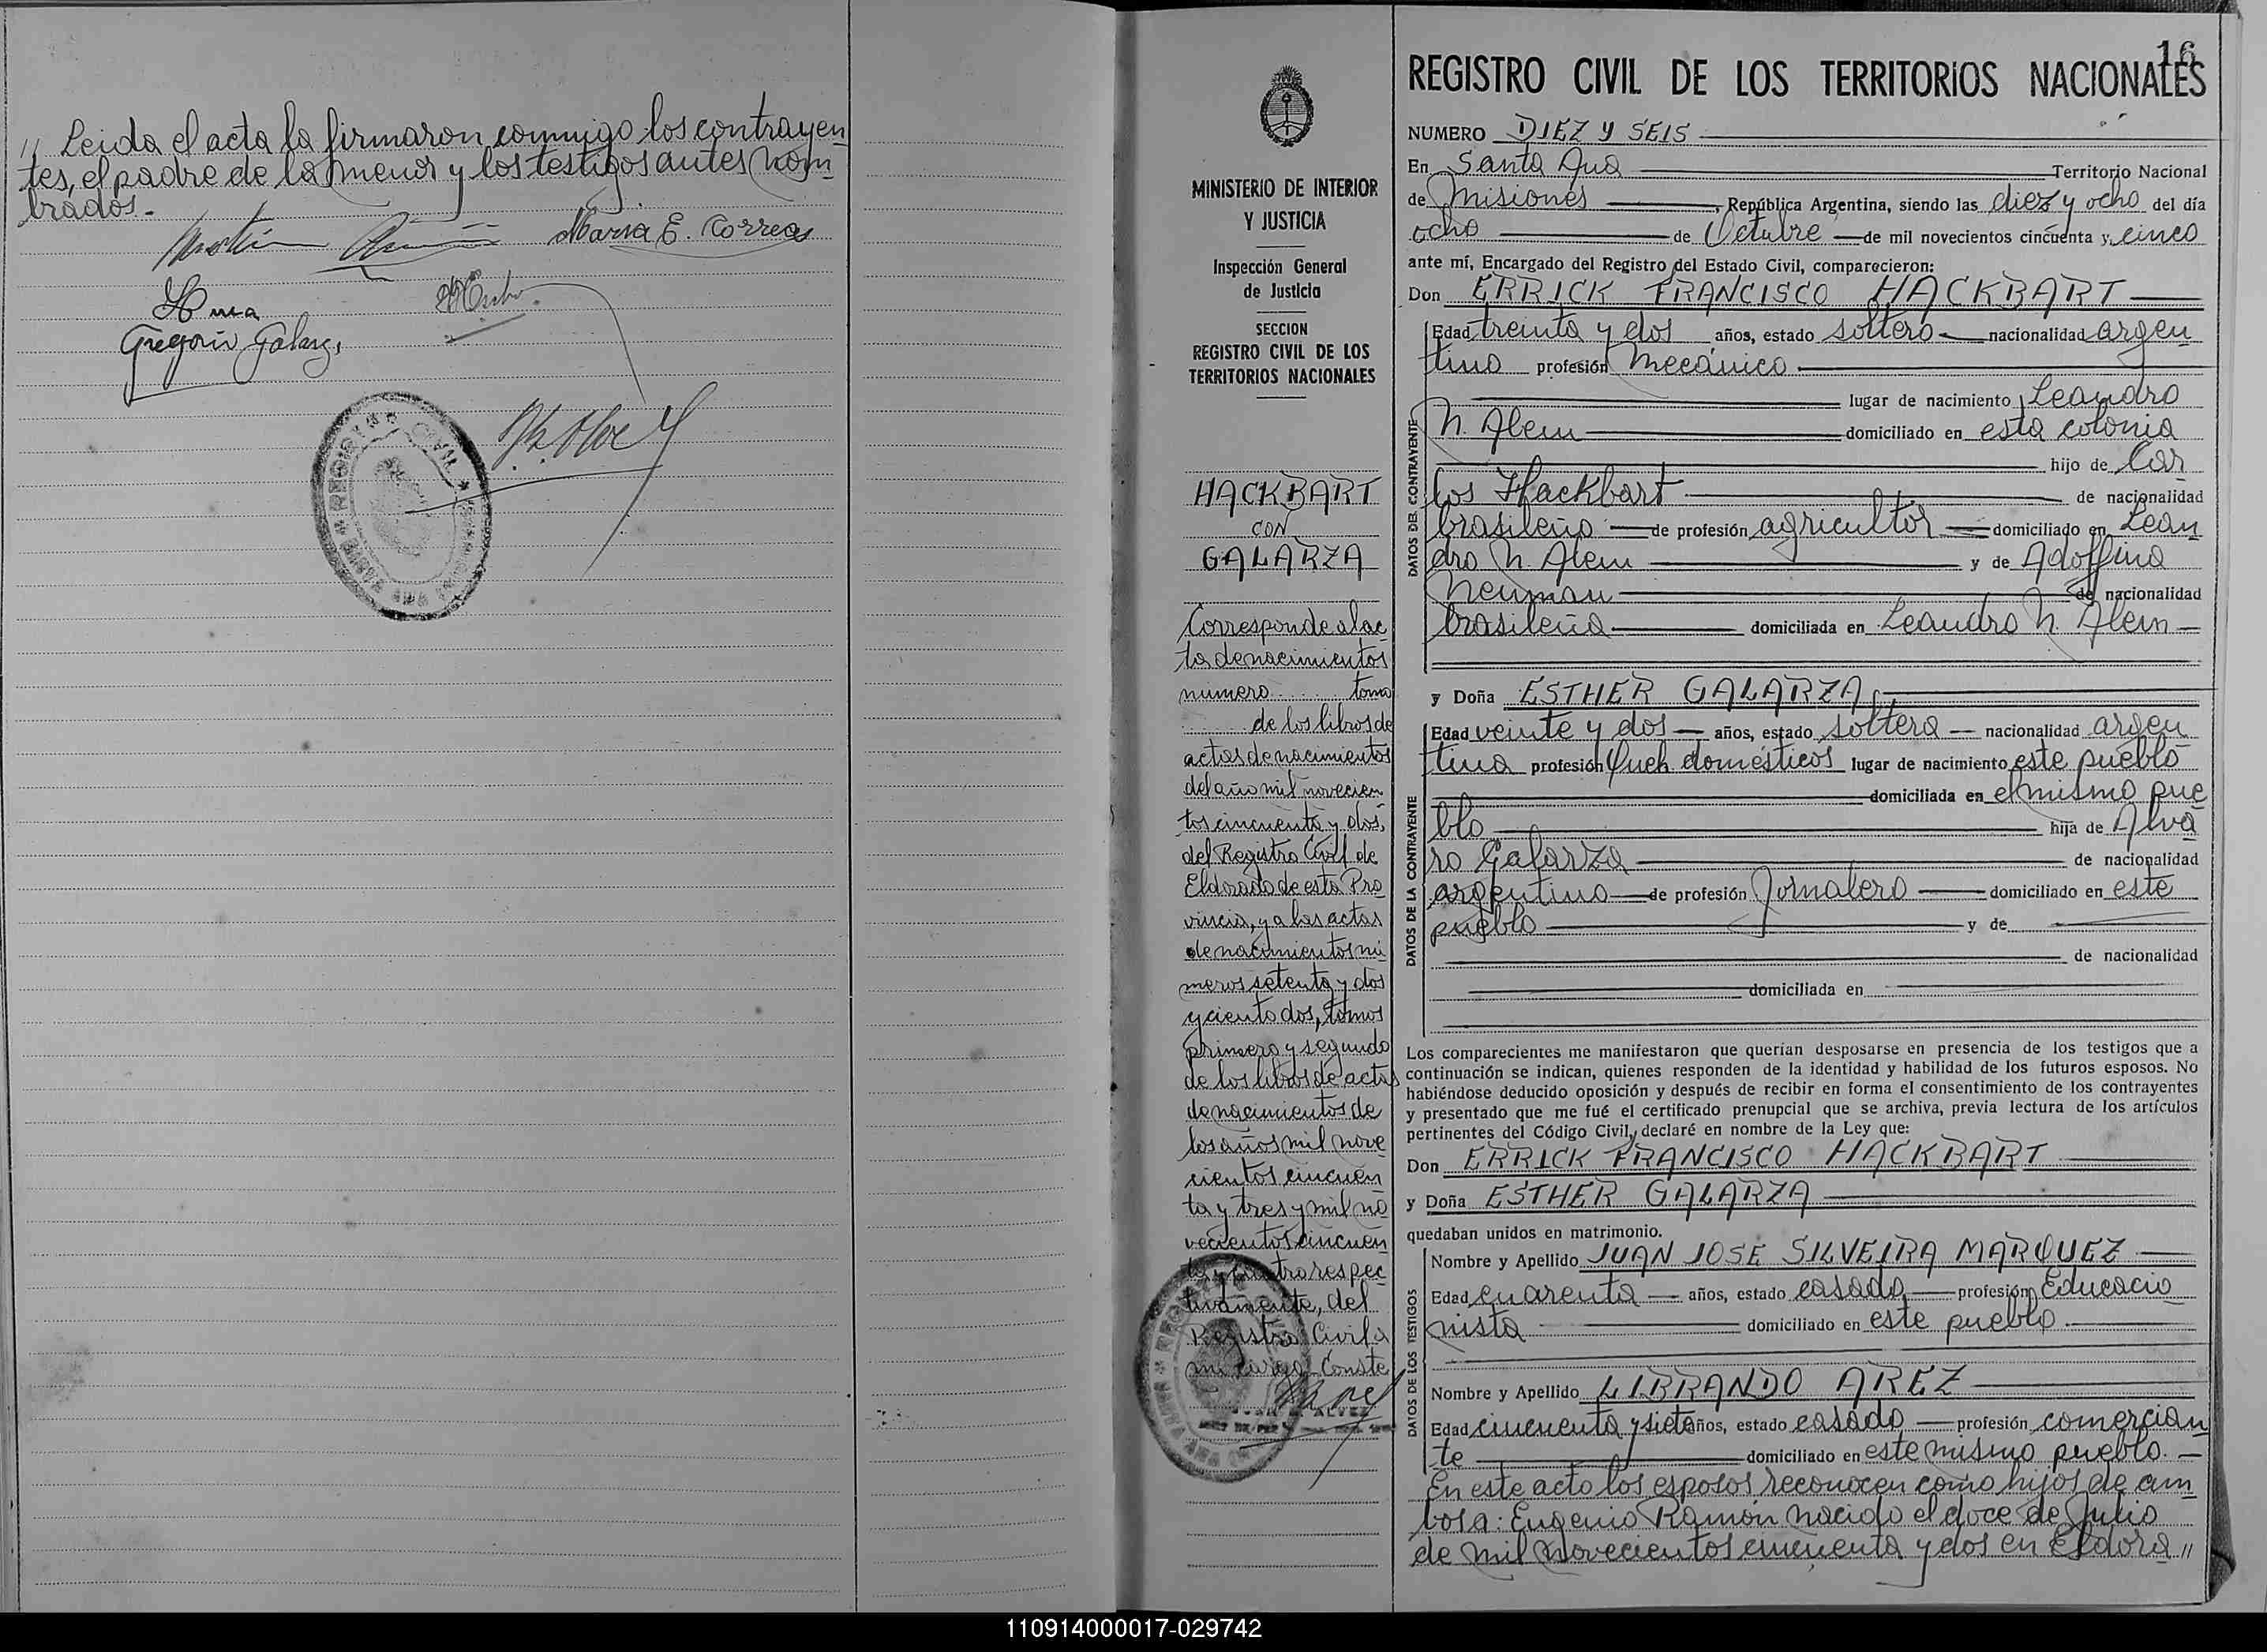 // Leida el acta la firmaron conmigo los contrayen
tes, el padre de la menor y los testigos antes nom
brados.-
Maria E. Correa
Gregorio Galarza
REGISTRO CIVIL
16
MINISTERIO DE INTERIOR
Y JUSTICIA
Inspección General
de Justicia
SECCION
REGISTRO CIVIL DE LOS
TERRITORIOS NACIONALES
HACKBART
CON
GALARZA
Corresponde al ac
ta de nacimientos
numero ........ tomo
........ de los libros de
actas de nacimientos
del año mil novecien
tos cincuenta y dos,
del Registro Civil de
Eldorado de esta Pro
vincia, y a las actas
de nacimientos nú
meros setenta y dos
y ciento dos, tomos
primero y segundo
de los libros de actas
de nacimientos de
los años mil nove
cientos cincuen
ta y tres y mil no
vecientos cincuen
ta y cuatro respec
tivamente, del
Registro Civil a
mi cargo. Conste
REGISTRO CIVIL DE LOS TERRITORIOS NACIONALES
NUMERO DIEZ Y SEIS
En Santa Ana Territorio Nacional
de Misiones, República Argentina, siendo las diez y ocho del día
ocho de Octubre de mil novecientos cincuenta y cinco
ante mí, Encargado del Registro del Estado Civil, comparecieron:
Don ERRICK FRANCISCO HACKBART
DATOS DEL CONTRAYENTE
Edad treinta y dos años, estado soltero nacionalidad argen
tino profesión Mecánico
lugar de nacimiento Leandro
N. Alem domiciliado en esta colonia
hijo de Car
los Hackbart de nacionalidad
brasileño de profesión agricultor domiciliado en Lean
dro N. Alem y de Adolfina
Neuman de nacionalidad
brasileña domiciliada en Leandro N. Alem
y Doña ESTHER GALARZA
DATOS DE LA CONTRAYENTE
Edad veinte y dos años, estado soltera nacionalidad argen
tina profesión Queh. domésticos lugar de nacimiento este pueblo
domiciliada en el mismo pue
blo hija de Alva
ro Galarza de nacionalidad
argentino de profesión Jornalero domiciliado en este
pueblo y de
de nacionalidad
domiciliada en
Los comparecientes me manifestaron que querían desposarse en presencia de los testigos que a
continuación se indican, quienes responden de la identidad y habilidad de los futuros esposos. No
habiéndose deducido oposición y después de recibir en forma el consentimiento de los contrayentes
y presentado que me fué el certificado prenupcial que se archiva, previa lectura de los artículos
pertinentes del Código Civil, declaré en nombre de la Ley que:
Don ERRICK FRANCISCO HACKBART
y Doña ESTHER GALARZA
quedaban unidos en matrimonio.
DATOS DE LOS TESTIGOS
Nombre y Apellido JUAN JOSE SILVEIRA MARQUEZ
Edad cuarenta años, estado casado profesión Educacio
nista domiciliado en este pueblo
Nombre y Apellido LIBRANDO AREZ
Edad cincuenta y siete años, estado casado profesión comercian
te domiciliado en este mismo pueblo.
En este acto los esposos reconocen como hijos de am
bos a: Eugenio Ramón nacido el doce de Julio
de mil novecientos cincuenta y dos en Eldora //
110914000017-029742